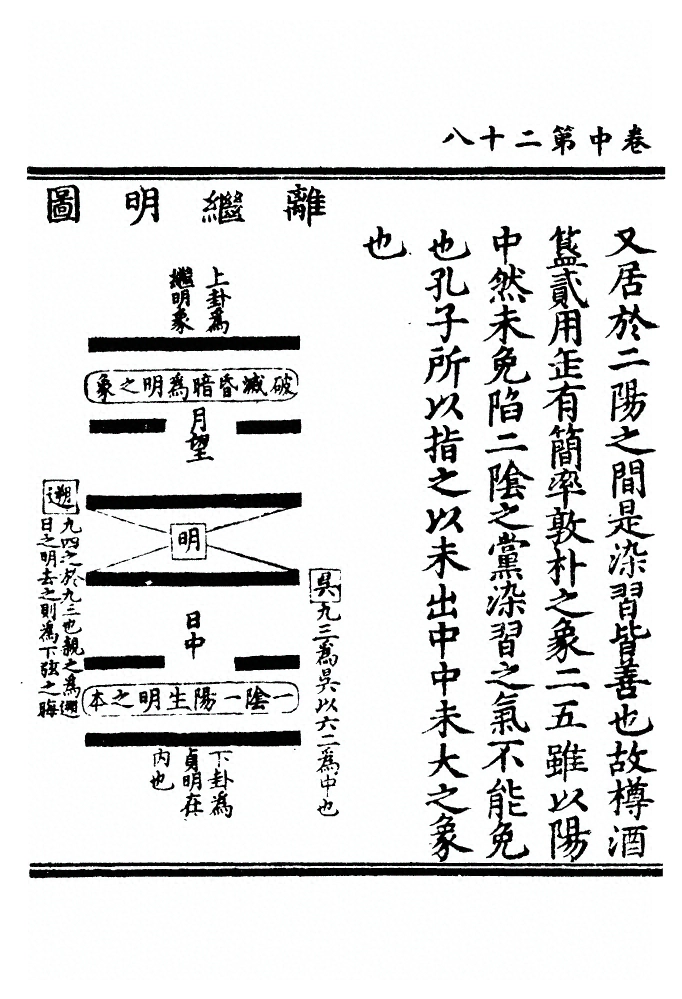 卷中第二十八
又居於二陽之間是染習皆善也故樽酒
簋貳用缶有簡率敦朴之象二五雖以陽
中然未免陷二陰之黨染習之氣不能免
也孔子所以指之以未出中中未大之象
也
離繼明圖
上卦為
繼明象
破滅昏暗為明之象
月望
明
日中
一陰一陽生明之本
下卦為
貞明在
內也
吳
九三為吳以六二為中也
遡
九四之於九三也親之為遡
日之明去之則為下弦之晦